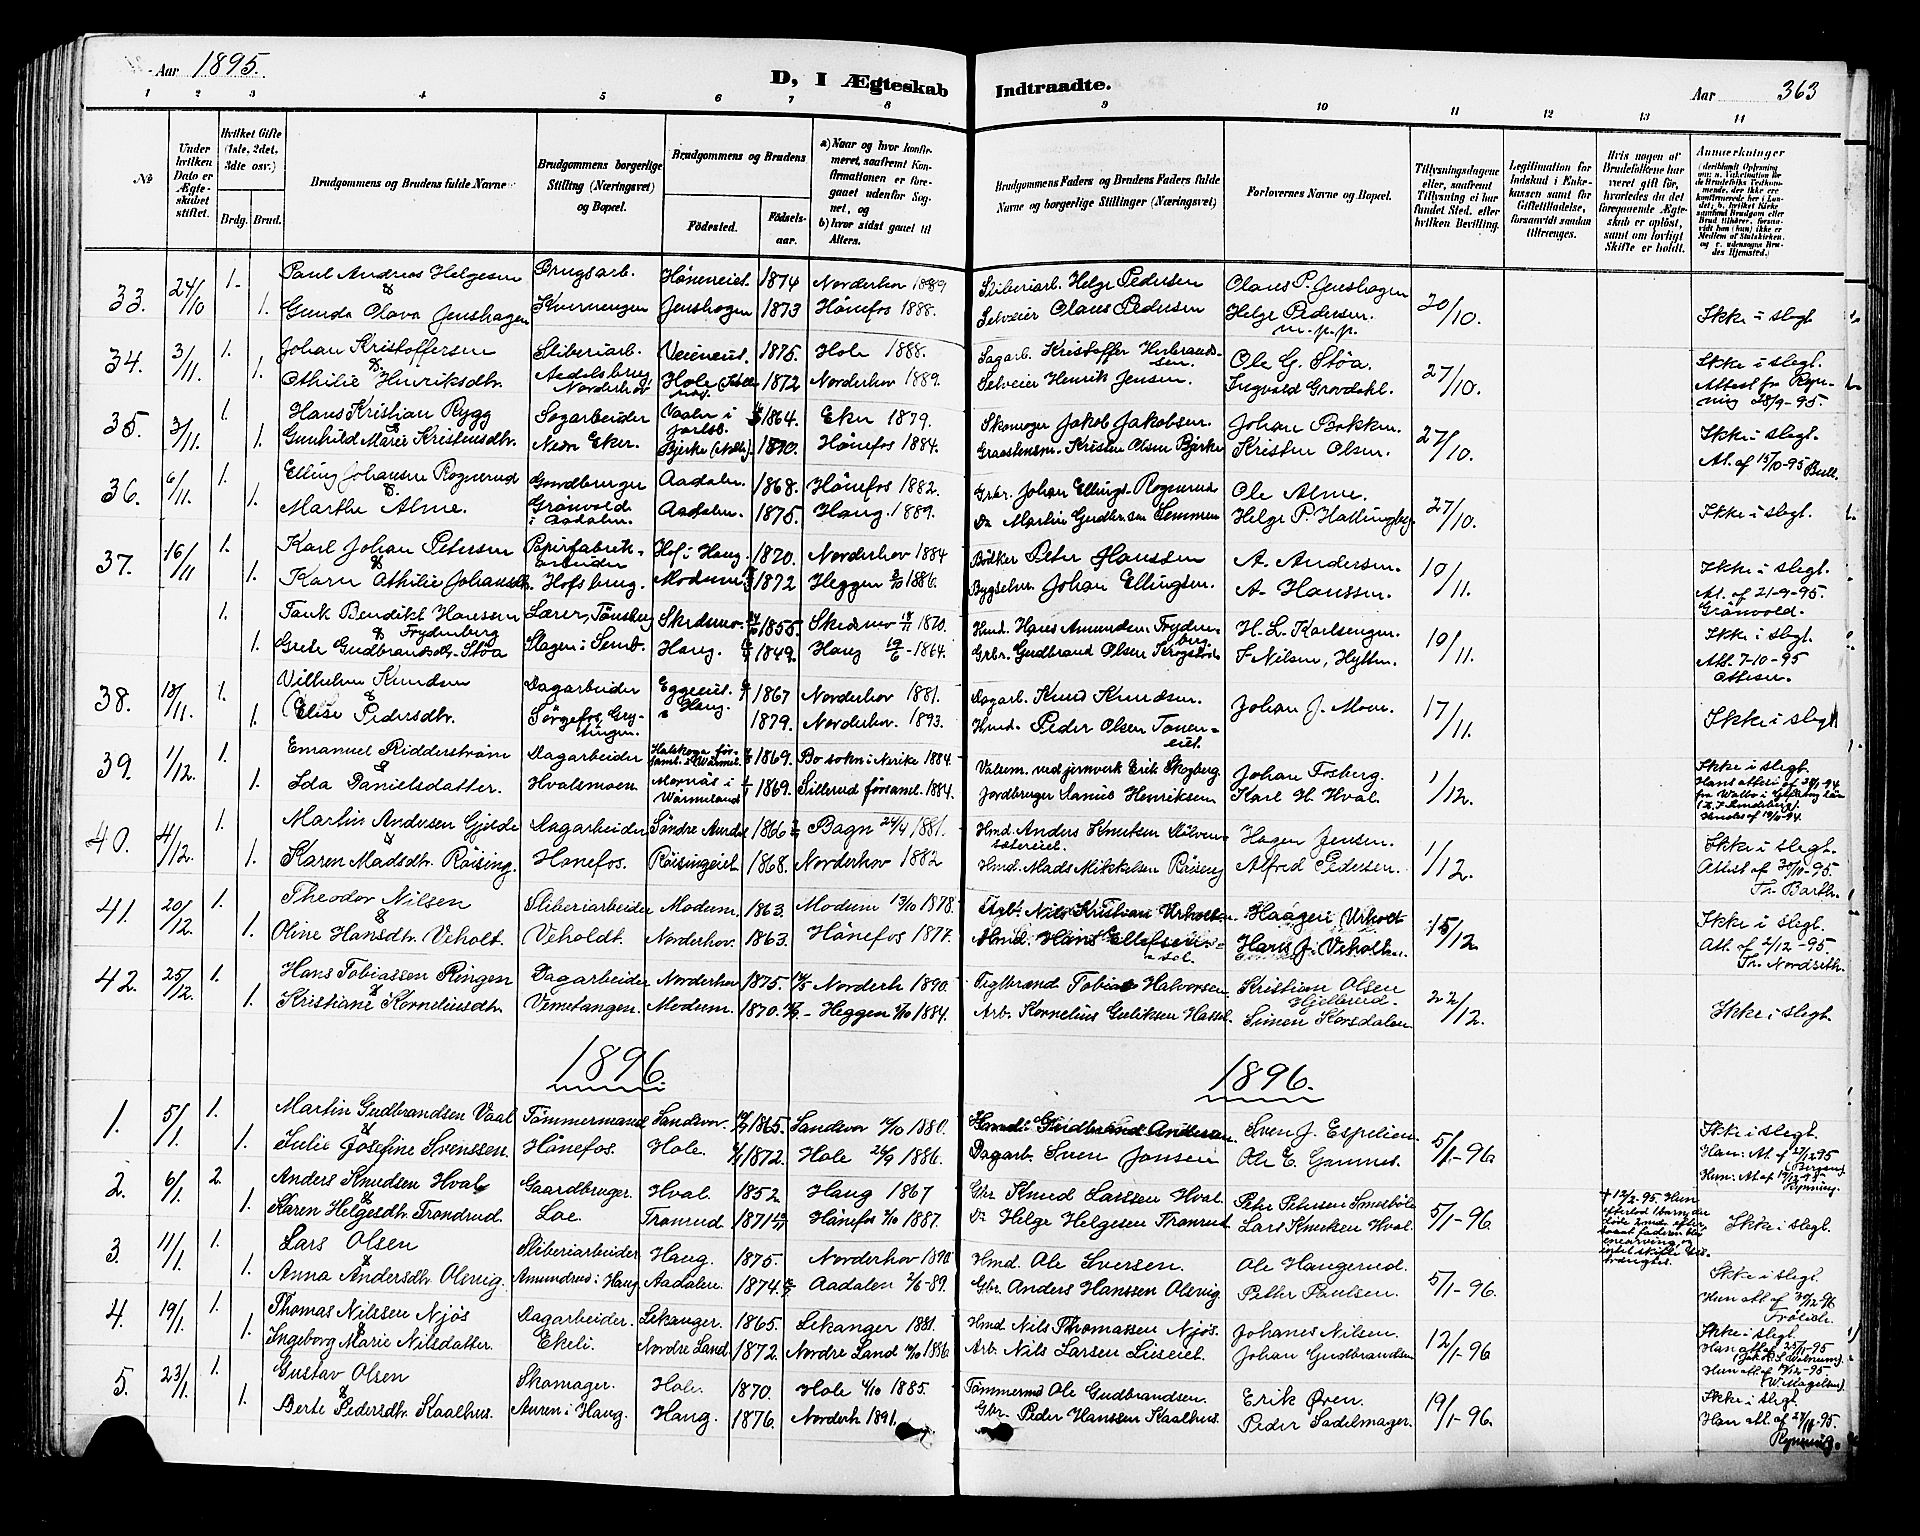 Aar 1895.
D, I Ægteskab Indtraadte.
Aar 363
1 2 3 4 5 6 7 8 9 10 11 12 13 14
No
Under hvilken Dato er Ægteskabet stiftet.
Hvilket Gifte (1ste, 2det, 3die osv.)
Brdg. Brud.
Brudgommens og Brudens fulde Navne
Brudgommens borgerlige Stilling (Næringsvei) og Bopæl.
Brudgommens og Brudens
Fødested. Fødselsaar.
a) Naar og hvor konfirmeret, saafremt Konfirmationen er foregaaet udenfor Sognet, og
b) hvor sidst gaaet til Alters.
Brudgommens Faders og Brudens Faders fulde Navne og borgerlige Stillinger (Næringsvei)
Forlovernes Navne og Bopæl.
Tillysningsdagene eller, saafremt Tillysning ei har fundet Sted, efter hvilken Bevilling.
Legitimation for Indskud i Enkekassen samt for Giftetilladelse, forsaavidt saadan tiltrænges.
Hvis nogen af Brudefolkene har været gift før, hvorledes da det foregaaende Ægteskab er opløst, samt om lovligt Skifte er holdt.
Anmærkninger
33. 24/10 1. Paul Andreas Helgesen Brugsarb. Høneneiet. 1874 Norderhov 1889 Sliberiarb. Helge Pedersen Claus P. Jenshagen 20/10.
& 1. Gunda Olava Jenshagen Kvernengen Jenshagen 1873 Hønefos 1888. Selveier Claus Pedersen Helge Pedersen m.p.p. Ikke i slegt
34. 3/11. 1. Johan Kristoffersen Sliberiarb. 1875. Hole 1888. Sagarb. Kristoffer Herbrandssen. Ole G. Støa 27/10. Ikke i slegt.
& 1. Othilie Henriksdtr. Norderhov Hole 1872 Norderhov 1889. Selveier Henrik Jensen Ingvald Grøvdahl. Attest fra Rynning 28/9-95.
35. 3/11. 1. Hans Kristian Rygg Sagarbeider Vaaler i Jarlsb. 1864. Eker 1879. Skomager Jakob Jakobsen. Johan Bokken 27/10. Ikke i slegt.
& 1. Gunhild Marie Kristensdtr. Nedre Eker. Bjerke 1870. Hønefos 1884. Kristen Olsen Bjerke Kristen Olsen. At. af 15/10-95 Bull.
36. 6/11. 1. Elling Johansen Rognerud Gaardbruger Aadalen. 1868. Hønefos 1882. Grbr. Johan Ellings. Rognerud Ole Alme. 27/10.
& 1. Marthe Alme. Grønvold i Aadalen. Aadalen. 1875. Haug. 1889. Do Martin Gudbransen Semmen Helge P. Hallingby Ikke i slegt.
37. 16/11 1. Karl Johan Petersen Papirfabrikarbeider Hof i Haug 1870. Norderhov 1884 Bødker Peter Hanssen A. Andersen. 10/11. Ikke i slegt.
& 1. Karen Othilie Johansdtr. Hofsbrug. Modum. 1872 Heggen 3/10 1886. Bygselm. Johan Ellingsen. A. Hanssen. At. af 21-9-95. Grønvold.
1. Tank Bendikt Hanssen Frydenberg Lærer, Tønsberg Skedsmo. 1855. Skedsmo 1870. Hmd. Hans Amundsen Frydenberg H. L. Karlsengen 10/11. Ikke i slegt
& 1. Grete Gudbrandsdtr. Støa Slagen i Semb. Haug. 1849. Haug 19/6-1864. Grbr. Gudbrand Olsen F. Nilsen, Hytten. Att. 7-10-95
38. 18/11. 1. Vilhelm Knudsen Dagarbeider Eggeeiet. i Haug. 1867 Norderhov 1881. Dagarb. Knud Knudsen. Johan J. Moen. 17/11.
& 1. Elise Pedersdtr. Sørgefos 1879. Norderhov. 1893. Hmd. Peder Olsen Ikke i slegt
39. 1/12. 1. Emanuel Ridderstrøm Dagarbeider 1869. Bo sokn i Nerike 1884. Valsem. ved jernverk Erik Skogberg Johan Fosberg. 1/12. Ikke i slegt.
& 1. Ida Danielsdatter. Hvalsmoen. i Wärmeland 1869. Sillerud församl. 1884. Jordbruger Henriksen Karl H. Hval.
40. 4/12. 1. Martin Andersen Gjilde Dagarbeider Søndre Aurdal 1866 Bagn 24/4 1881. Hmd. Anders Knutsen Hagen Jensen. 1/12. Ikke i slegt.
& 1. Karen Madsdtr. Røising. Hønefos. Røisingeiet. 1868. Norderhov 1882 Hmd. Mads Mikkelsen Røiseng Alfred Pedersen. Attest af 30/10-95. Th. Barth.
41. 20/12. 1. Theodor Nilsen Sliberiarbeider Modum. 1863. Modum 13/10 1878. Nils Kristian Urholt Haagen Urholt 15/12. Ikke i slegt.
& 1. Oline Hansdtr. Veholt. Veholdt. Norderhov. 1863. Hønefos 1877. Hmd. Hans Ellefsen Hans J. Veholt Att. af 2/12-95 Th. Nordseth.
42. 25/12. 1. Hans Tobiassen Ringen Dagarbeider Norderhov 1875. Norderh. 1890. Teglbrænd. Tobias Halvorsen. Kristian Olsen Hjelkerud. 22/12.
& 1. Kristiane Korneliusdtr. Vemetangen. Modum. 1870. Heggen 5/10 1884. Arb. Kornelius Gulliksen Hassel. Simon Korsdalen Ikke i slegt.
1896 1896.
1. 5/1. 1. Martin Gudbrandsen Vaal Tømmermand Sandsvær. 1865. Sandsvær 1880. Hmd. Gudbrand Andersen Sven J. Espelien 5/1-96. Ikke i slegt.
& 1. Julie Josefine Svenssen. Hønefos. Hole. 1872. Hole 26/9 1886. Dagarb. Sven Jonsen Ole E. Gamnes. Han: At. af 27/12 95
2. 6/1. 2. Anders Knudsen Hval Gaardbruger. Hval. 1852. Haug 1867 Gbr Knud Larssen Hval. Peter Petersen 5/1-96. Hun: At af 19/12-95 Rynning.
& 1. Karen Helgesdtr. Trøndrud. Loe. Trønrud. 1871 Hønefos 1887. Do Helge Helgesen Trønrud Lars Knutsen Hval. + 12/2-95. Ikke i slegt.
3. 11/1. 1. Lars Olsen Sliberiarbeider Haug. 1875. Norderhov 1890 Hmd. Ole Iversen. Ole Haugerud. 5/1-96.
& 1. Anna Andersdtr Olsvig. Amundrud i Haug Aadalen. 1874. Aadalen 2/6-89. Gbr. Anders Hanssen Olsvig. Petter Paulsen. Ikke i slegt. Hun att. af
4. 19/1. 1. Thomas Nilssen Njøs Dagarbeider. Lekanger. 1865. Lekanger 1881. Hmd. Nils Thomassen Njøs. Johanes Nilsen. 12/1-96 Ikke i slegt.
& 1. Ingeborg Marie Nilsdatter. Ekeli. Nordre Land 1872. Nordre Land 1886. Arb. Nils Larsen Lieseiet. Johan Gudbrandsen
5. 23/1. 1. Gustav Olsen Skomager. Hole. 1870. Hole 4/10 1885. Tømmermd Ole Gudbrandsen. Erik Øren. 19/1-96. Ikke i slegt.
& 1. Berte Pedersdtr. Kaalhus. Auren i Haug. Haug. 1876. Norderh. 1891. Gbr. Peder Hanssen Kaalhus. Peder Sadelmager. Han att. af 27/11-95. Rynning.